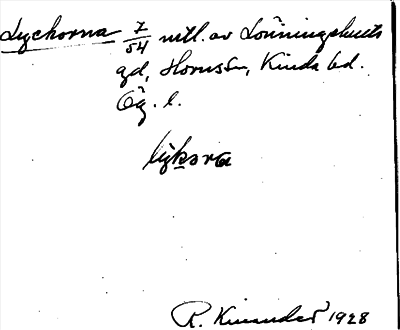 Lyckorna 7/54 mtl. av Lönningshults
gd, Hornssn, Kinda hd.
Ög. l.
lykωrα
R. Kinander 1928